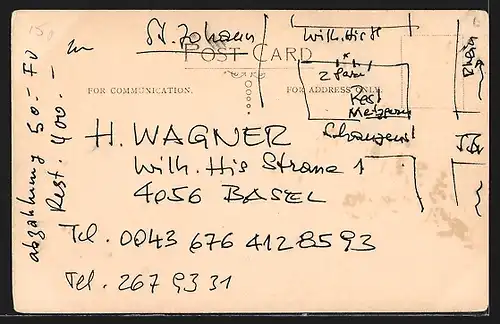 St. Johann
Wilh. His St
POST CARD
FOR COMMUNICATION.
FOR ADDRESS ONLY.
Rest.
Metzgerei
H. WAGNER
Wilh. His Strasse 1
4056 BASEL
Tel. 0043 676 412 85 93
Tel. 267 93 31
abzahlung 50.- Fr
Rest. 400.-